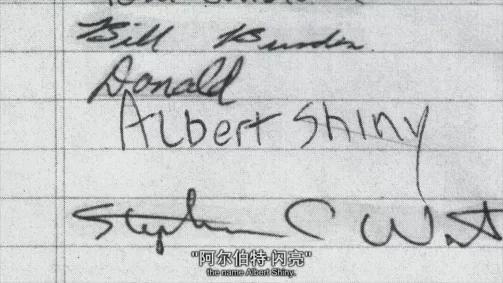 Bill
Donald
Albert Shiny
Stephen C W
"阿尔伯特·闪亮"
the name Albert Shiny.